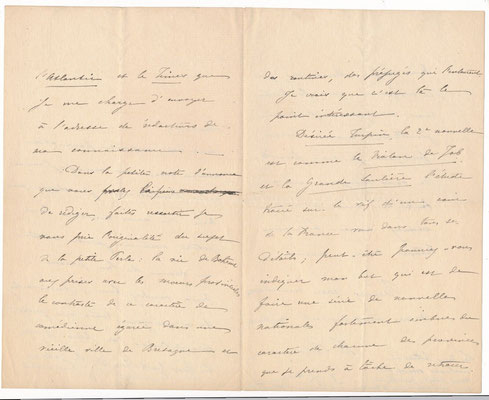 l'Atlantic et le Times que
je me charge d'envoyer
à l'adresse de rédacteurs de
ma connaissance.
Dans la petite note d'annonce
que vous
de rédiger, faites ressortir je
vous prie l'originalité du sujet
de la petite Perle: la vie de
aux prises avec les moeurs provinciales
le contraste de ce caractère de
comédienne égarée dans une
vieille ville de Bretagne et
des routines, des préjugés qui
Je crois que c'est là le
point intéressant.
Désirée Turpin la 2e nouvelle
est comme le Violon de Job
et la Grande Saulière l'étude
tracée sur le vif d'un coin
de la France vu dans tous ses
détails; peut-être pourriez-vous
indiquer mon but qui est de
faire une série de nouvelles
nationales fortement
caractère de chacune des provinces
que je prends à tâche de retracer